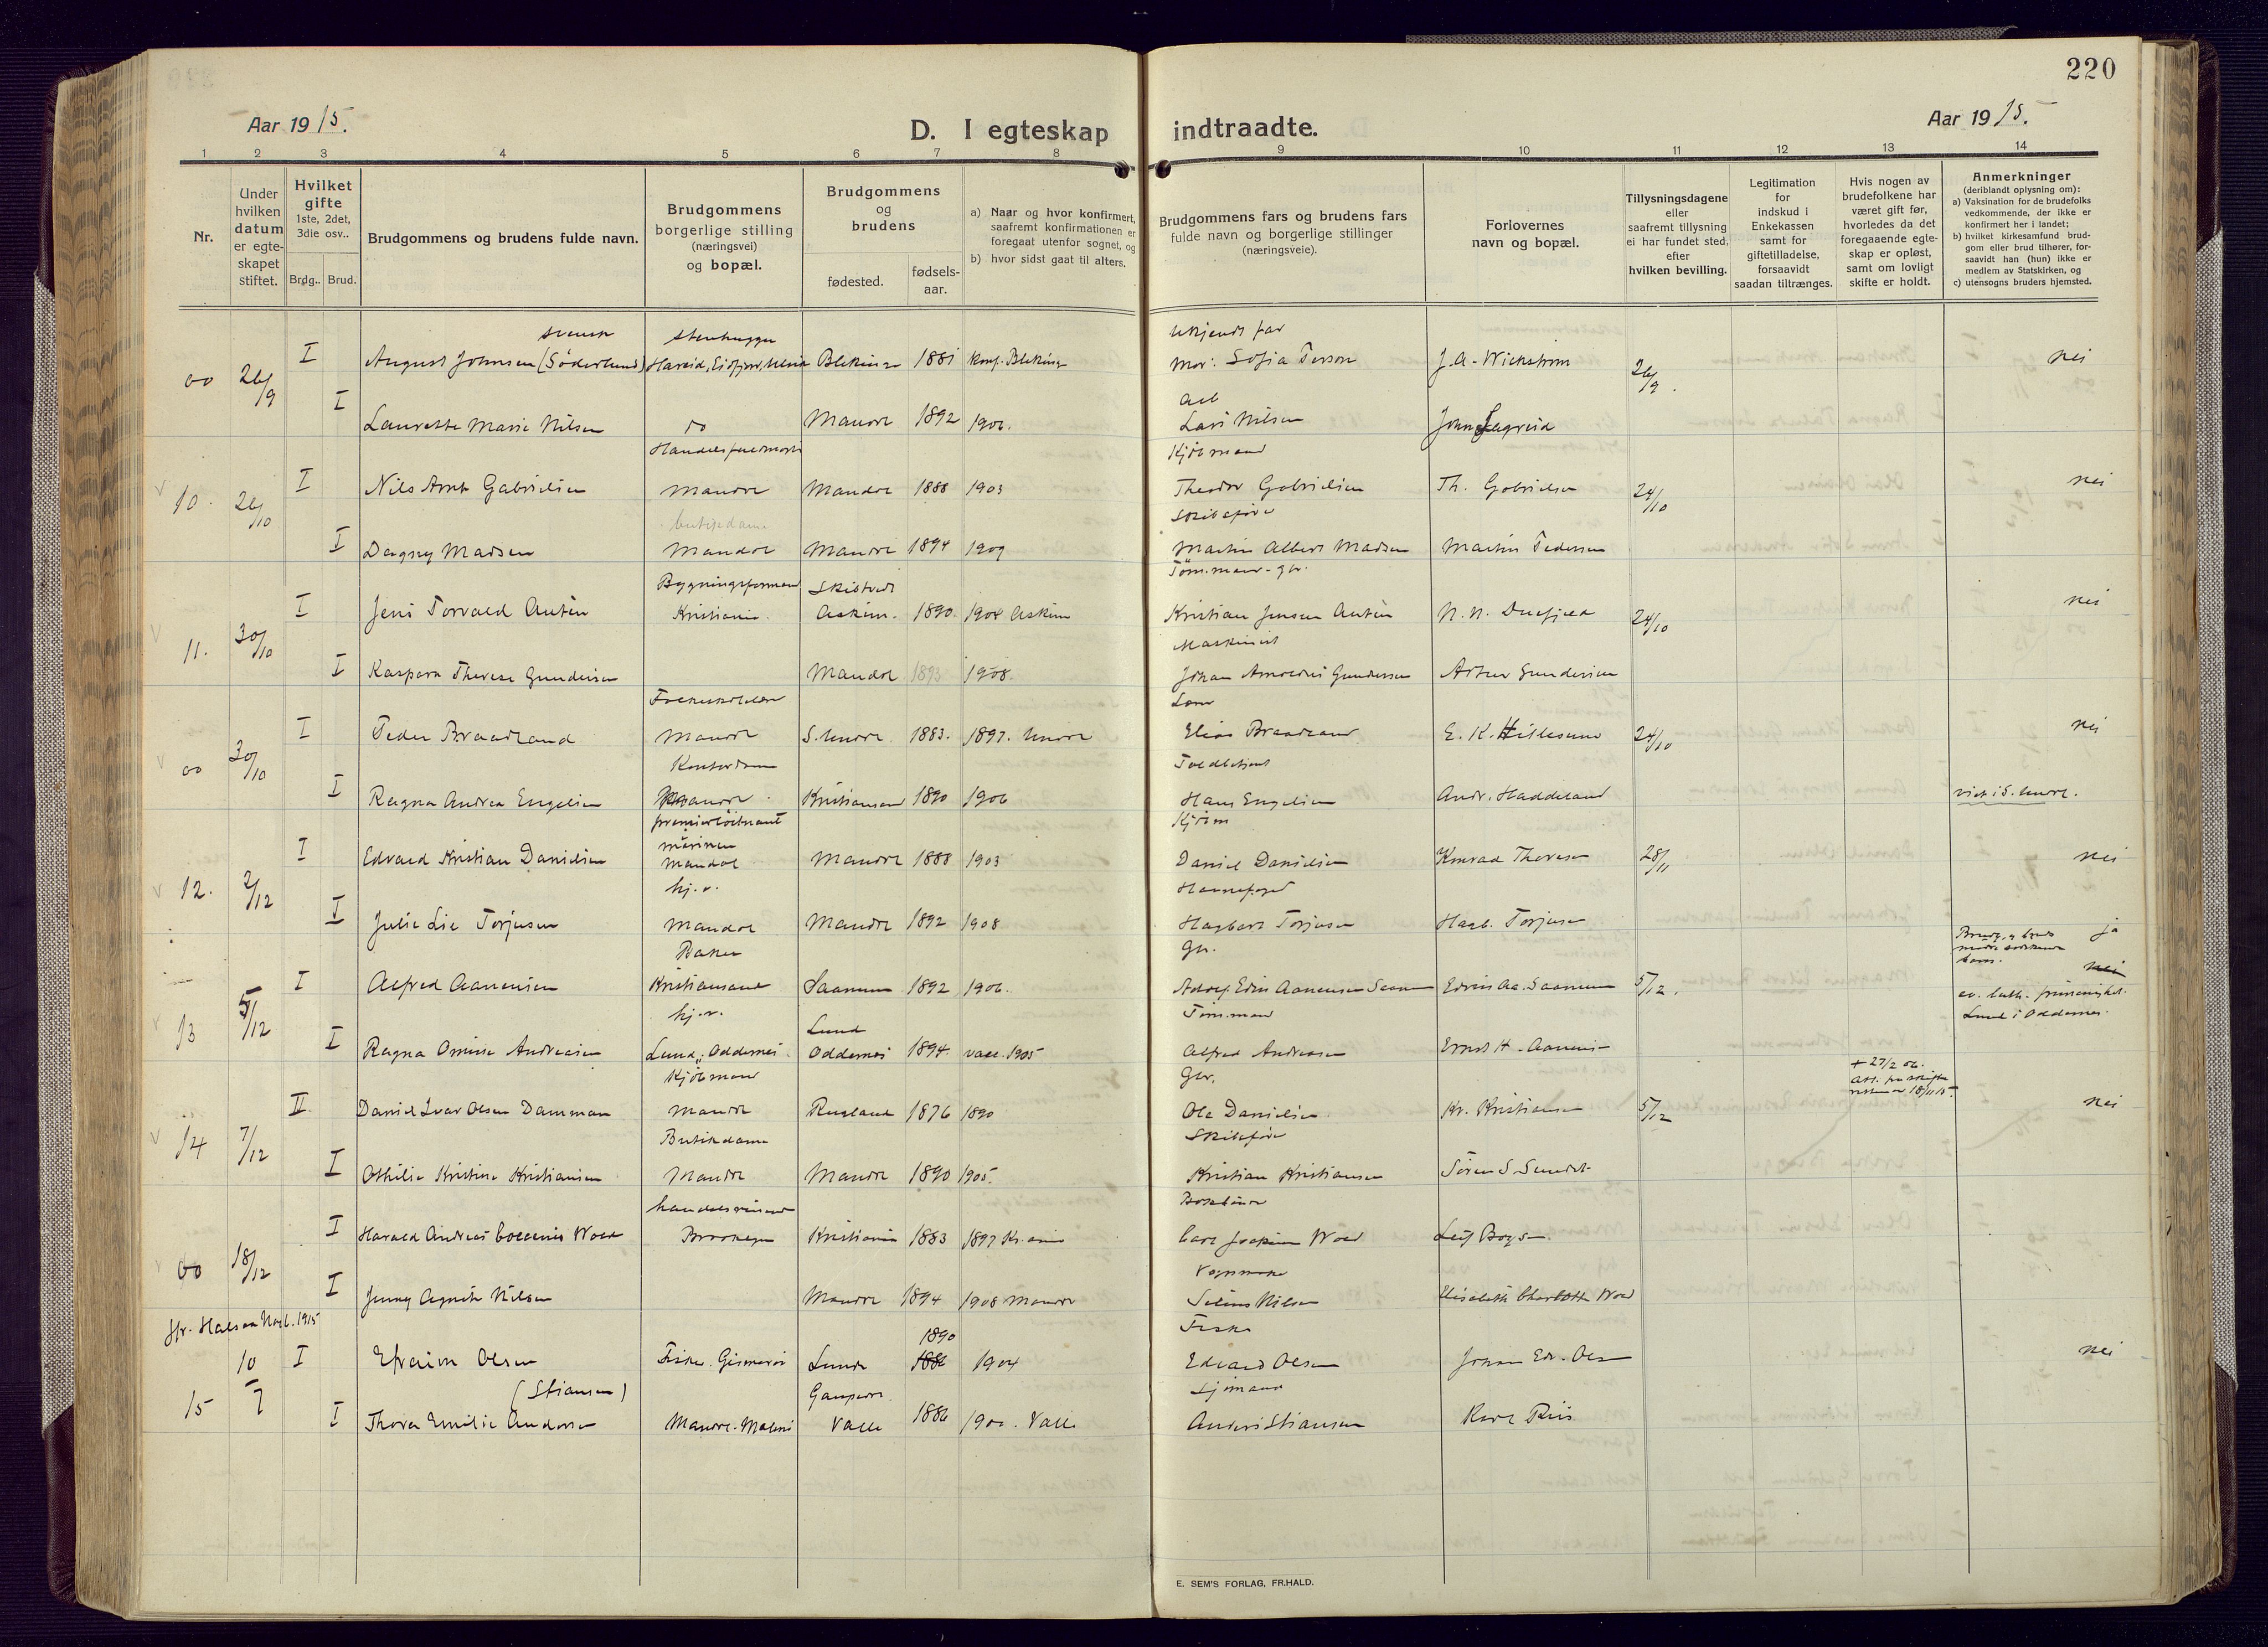 220
Aar 1915.
D. I egteskap indtraadte.
Aar 1915.
1 2 3 4 5 6 7 8 9 10 11 12 13 14
Nr.
Under hvilken datum er egte-skapet stiftet.
Hvilket gifte 1ste, 2det, 3die osv..
Brdg.. Brud.
Brudgommens og brudens fulde navn.
Brudgommens borgerlige stilling (næringsvei) og bopæl.
Brudgommens og brudens
fødested.
fødsels-aar.
a) Naar og hvor konfirmert, saafremt konfirmationen er foregaat utenfor sognet, og
b) hvor sidst gaat til alters.
Brudgommens fars og brudens fars fulde navn og borgerlige stillinger (næringsveie).
Forlovernes navn og bopæl.
Tillysningsdagene eller saafremt tillysning ei har fundet sted, efter hvilken bevilling.
Legitimation for indskud i Enkekassen samt for giftetilladelse, forsaavidt saadan tiltrænges.
Hvis nogen av brudefolkene har været gift før, hvorledes da det foregaaende egte-skap er opløst, samt om lovligt skifte er holdt.
Anmerkninger (deriblandt oplysning om):
a) Vaksination for de brudefolks vedkommende, der ikke er konfirmert her i landet;
b) hvilket kirkesamfund brud-gom eller brud tilhører, for-saavidt han (hun) ikke er medlem av Statskirken, og
c) utensogns bruders hjemsted.
svensk stenhugger ukjendt far
00 26/9 I August Johnsen (Söderlund) Hareid, Eidfjord Blekinge 1881 konf. Blekinge Mor: Sofia Person J. A. Wickstrøm 26/9. nei
Arb
I Laurette Marie Nilsen do Mandal 1892 1906. Lars Nilsen
Kjøbmand
10. 26/10 I Nils Arnt Gabrielsen Mandal Mandal 1888 1903 Theodor Gabrielsen Th. Gabrielsen 24/10 nei
butikdame Skibsfører
I Dagny Madsen Mandal Mandal 1894 1909 Martin Albert Madsen Martin Pedersen
Bygningsformand Skibtvedt Tøm.mand - gbr.
11. 30/10 I Jens Torvald Antin Kristiania Askim. 1890. 1904 Askim Kristian Jensen Antin N. N. Duefjeld 24/10 nei
Maskinist
I Kaspara Therese Gundersen Mandal 1893 1908. Johan Arnoldus Gundersen Artur Gundersen
00 30/10 I Peder Braadland Mandal S. Undal 1883. 1897. Undal Elias Braadland E. K. Hillesund 24/10 nei
Kontordame Toldbetjent
I Ragna Andrea Engelsen Mandal Kristiansand 1890 1906 Hans Engelsen Andr. Haddeland viet i S. Undal.
premierløitnant
marinen
12. 2/12 I Edvard Kristian Danielsen Mandal Mandal 1888 1903 Daniel Danielsen Konrad Thorsen 28/11 nei
hj. v. Havnefoged
I Julie Lie Torjusen Mandal Mandal 1892 1908 Hagbart Torjusen Hagb. Torjusen
Baker Gbr. ja
13 5/12 I Alfred Aanensen Kristiansand Saanum 1892 1906. Adolf Edvin Aanensen Saanum Edvin Aa. Saanum 5/12. nei
hj. v. Lund Tøm.mand ev. luth. frimenighet.
Lund i Oddernes.
I Ragna Omine Andreasen Lund, Oddernes Oddernes 1894. vacc. 1905 Alfred Andreasen Ernst H. Aanens
Kjøbmand Gbr. + 27/2 06.
14 7/12 II. Daniel Ivar Olsen Damman Mandal Rusland 1876 1890 Ole Danielsen Kr. Kristiansen 5/12 nei
Butikdame Skibsfører
I Othilie Kristine Kristiansen Mandal Mandal 1890 1905. Kristian Kristiansen Sören S. Sundet
00 18/12 I Harald Andreas Wold Kristiania 1883 1897 Kr.ania Carl Joakim Wold Leif Boysen
Vognmand
I Jenny Agnete Nilsen Mandal 1894 1908 Mandal Selius Nilsen Elisabeth Charlotte Wold
Jfr. Halsaa 1915 Fisker
1890
15 10/7 I Efraim Olsen Fisker. Gismerøi Lunde 1886 1904 Edvard Olsen Johan Edv. Olsen nei
(Stiansen) Sjømand
I Thora Emilie Anderssen Mandal. Malmø Valle 1886 1900. Valle Anders Stiansen Karl Riis
E. SEM'S FORLAG, FR.HALD.